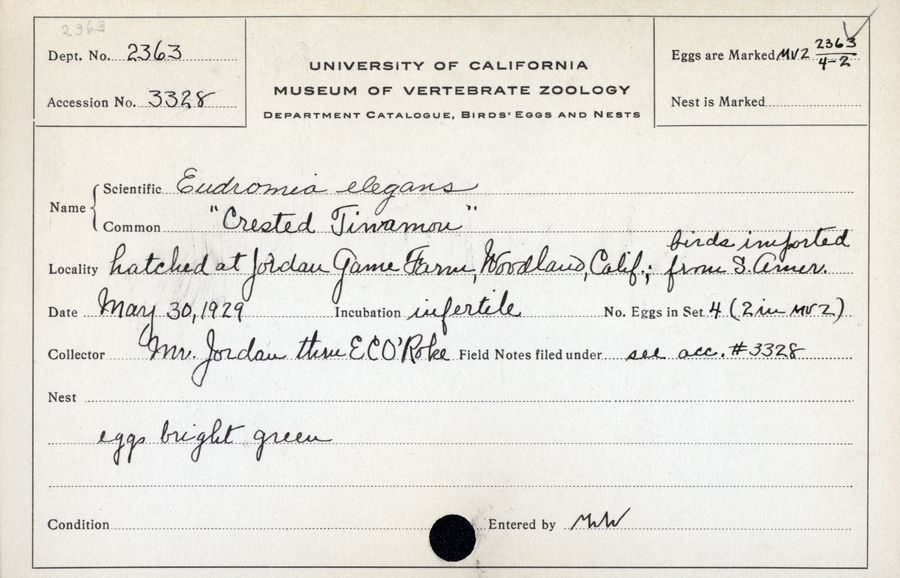 2363
Dept. No. 2363
Accession No. 3328
UNIVERSITY OF CALIFORNIA
MUSEUM OF VERTEBRATE ZOOLOGY
DEPARTMENT CATALOGUE, BIRDS' EGGS AND NESTS
Eggs are Marked MVZ 2363/4-2
Nest is Marked
Name
Scientific Eudromia elegans
Common "Crested Tinamou"
birds imported
Locality hatched at Jordan Game Farm, Woodland, Calif.; from S. Amer.
Date May 30, 1929 Incubation infertile No. Eggs in Set 4 (2 in MVZ)
Collector Mr. Jordan thru E C O'Roke Field Notes filed under see acc. #3328
Nest
eggs bright green
Condition Entered by